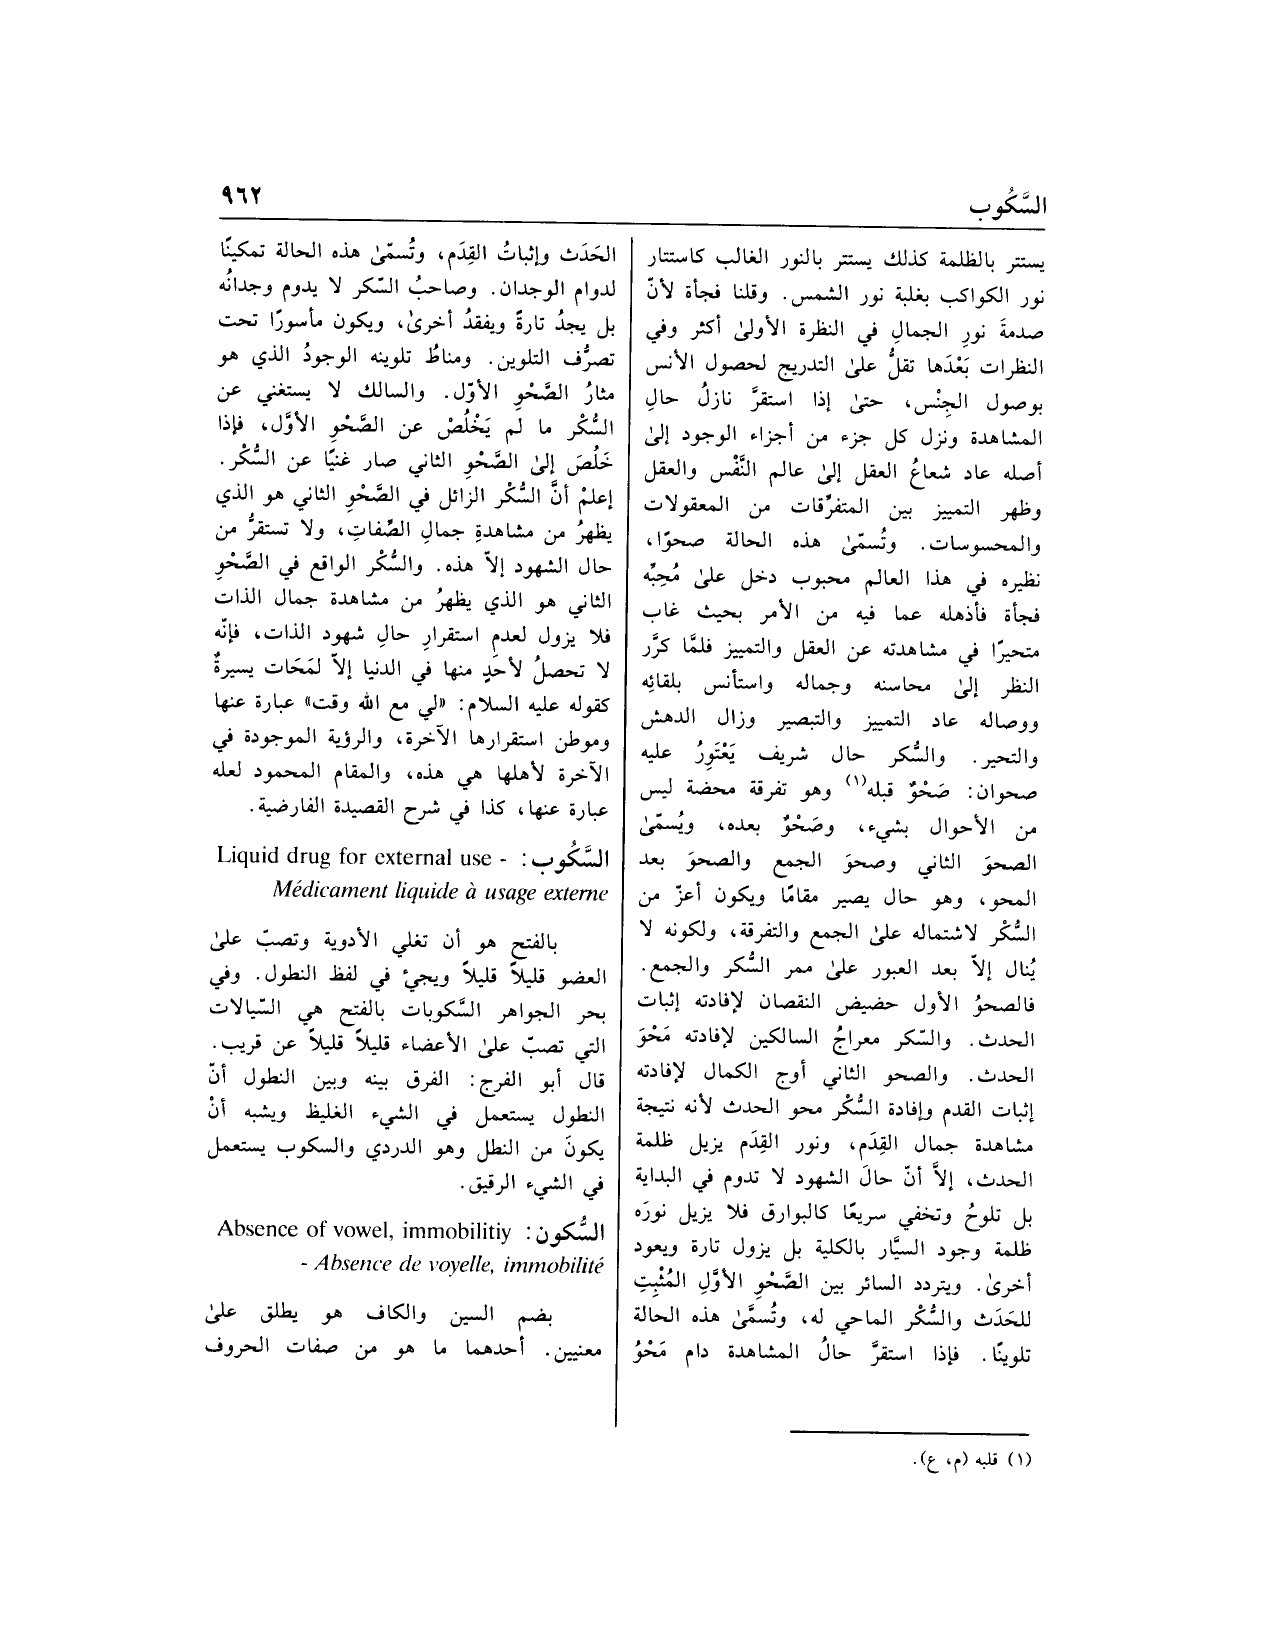 السَّكُوب
٩٦٢
يستتر بالظلمة كذلك يستتر بالنور الغالب كاستتار
نور الكواكب بغلبة نور الشمس. وقلنا فجأة لأنّ
صدمةَ نورِ الجمالِ في النظرة الأولىٰ أكثر وفي
النظرات بَعْدَها تقلُّ علىٰ التدريج لحصول الأنس
بوصول الجِنْس، حتىٰ إذا استقرَّ نازلُ حالِ
المشاهدة ونزل كل جزء من أجزاء الوجود إلىٰ
أصله عاد شعاعُ العقل إلىٰ عالم النَّفْس والعقل
وظهر التمييز بين المتفرِّقات من المعقولات
والمحسوسات. وتُسمّىٰ هذه الحالة صحوًا،
نظيره في هذا العالم محبوب دخل علىٰ مُحِبِّه
فجأة فأذهله عما فيه من الأمر بحيث غاب
متحيرًا في مشاهدته عن العقل والتمييز فلمَّا كرَّر
النظر إلىٰ محاسنه وجماله واستأنس بلقائِه
ووصاله عاد التمييز والتبصير وزال الدهش
والتحير. والسُّكر حال شريف يَعْتَوِرُ عليه
صحوان: صَحْوٌ قبله(١) وهو تفرقة محضة ليس
من الأحوال بشيء، وصَحْوٌ بعده، ويُسمّىٰ
الصحوَ الثاني وصحوَ الجمع والصحوَ بعد
المحو، وهو حال يصير مقامًا ويكون أعزّ من
السُّكْر لاشتماله علىٰ الجمع والتفرقة، ولكونه لا
يُنال إلاّ بعد العبور علىٰ ممر السُّكر والجمع.
فالصحوُ الأول حضيض النقصان لإفادته إثبات
الحدث. والسّكر معراجُ السالكين لإفادته مَحْوَ
الحدث. والصحو الثاني أوج الكمال لإفادته
إثبات القدم وإفادة السُّكْر محو الحدث لأنه نتيجة
مشاهدة جمال القِدَم، ونور القِدَم يزيل ظلمة
الحدث، إلاَّ أنّ حالَ الشهود لا تدوم في البداية
بل تلوحُ وتخفي سريعًا كالبوارق فلا يزيل نورَه
ظلمة وجود السيَّار بالكلية بل يزول تارة ويعود
أخرىٰ. ويتردد السائر بين الصَّحْوِ الأوَّلِ المُثْبِتِ
للحَدَث والسُّكْر الماحي له، وتُسمَّىٰ هذه الحالة
تلوينًا. فإذا استقرَّ حالُ المشاهدة دام مَحْوُ
الحَدَث وإثباتُ القِدَم، وتُسمّىٰ هذه الحالة تمكينًا
لدوام الوجدان. وصاحبُ السّكر لا يدوم وجدانُه
بل يجدُ تارةً ويفقدُ أخرىٰ، ويكون مأسورًا تحت
تصرُّف التلوين. ومناطُ تلوينه الوجودُ الذي هو
مثارُ الصَّحْوِ الأوّل. والسالك لا يستغني عن
السُّكْر ما لم يَخْلُصْ عن الصَّحْوِ الأوَّل، فإذا
خَلُصَ إلىٰ الصَّحْوِ الثاني صار غنيًا عن السُّكْر.
إعلمْ أنَّ السُّكْر الزائل في الصَّحْوِ الثاني هو الذي
يظهرُ من مشاهدةِ جمالِ الصِّفاتِ، ولا تستقرُّ من
حال الشهود إلاّ هذه. والسُّكْر الواقع في الصَّحْوِ
الثاني هو الذي يظهرُ من مشاهدة جمال الذات
فلا يزول لعدم استقرارِ حالِ شهود الذات، فإنّه
لا تحصلُ لأحَدٍ منها في الدنيا إلاّ لمَحَات يسيرةٌ
كقوله عليه السلام: «لي مع الله وقت» عبارة عنها
وموطن استقرارها الآخرة، والرؤية الموجودة في
الآخرة لأهلها هي هذه، والمقام المحمود لعله
عبارة عنها، كذا في شرح القصيدة الفارضية.
السَّكُوب: Liquid drug for external use -
Médicament liquide à usage externe
بالفتح هو أن تغلي الأدوية وتصبّ علىٰ
العضو قليلاً قليلاً ويجيءُ في لفظ النطول. وفي
بحر الجواهر السَّكوبات بالفتح هي السّيالات
التي تصبّ علىٰ الأعضاء قليلاً قليلاً عن قريب.
قال أبو الفرج: الفرق بينه وبين النطول أنّ
النطول يستعمل في الشيء الغليظ ويشبه أنْ
يكونَ من النطل وهو الدردي والسكوب يستعمل
في الشيء الرقيق.
السُّكون: Absence of vowel, immobilitiy
- Absence de voyelle, immobilité
بضم السين والكاف هو يطلق علىٰ
معنيين. أحدهما ما هو من صفات الحروف
(١) قلبه (م، ع).